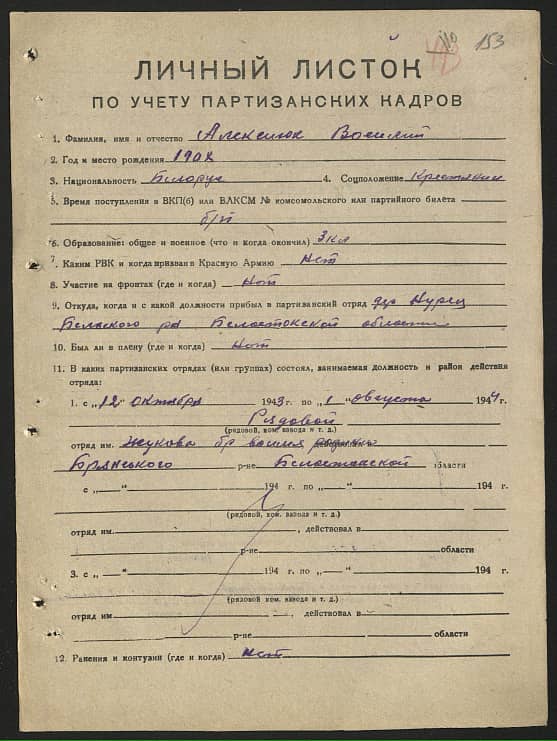 153
ЛИЧНЫЙ ЛИСТОК
ПО УЧЕТУ ПАРТИЗАНСКИХ КАДРОВ
1. Фамилия, имя и отчество Алексиюк Василий
2. Год и место рождения 1902
3. Национальность Билорус 4. Соцположение Крестянин
5. Время поступления в ВКП(б) или ВЛКСМ № комсомольского или партийного билета
б/п
6. Образование: общее и военное (что и когда окончил) 3 кл
7. Каким РВК и когда призван в Красную Армию Нет
8. Участие на фронтах (где и когда) Нет
9. Откуда, когда и с какой должности прибыл в партизанский отряд дер Нурец
Бельского р-а Белостокской области
10. Был ли в плену (где и когда) Нет
11. В каких партизанских отрядах (или группах) состоял, занимаемая должность и район действия
отряда:
1. с „12" октября 1943 г. по „1" августа 1944 г.
Рядовой
(рядовой, ком. взвода и т. д.)
отряд им. Жукова бр
Брянського р-не Белостокской области
с „—" 194 г. по „—" 194 г.
(рядовой, ком. взвода и т. д.)
отряд им. , действовал в
р-не области
3. с „—" 194 г. по „—" 194 г.
(рядовой, ком. взвода и т. д.)
отряд им , действовал в
р-не области
12. Ранения и контузии (где и когда) Нет